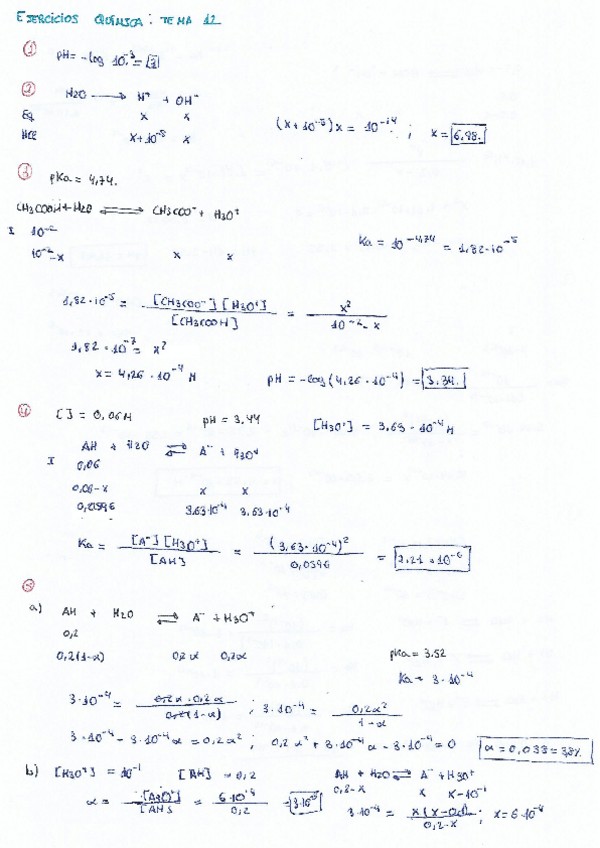 EJERCICIOS QUÍMICA: TEMA 12
① pH = -log 10⁻³ = 3
② H2O → H⁺ + OH⁻
Eq x x
HCl x+10⁻⁵ x
(x+10⁻⁵)x = 10⁻¹⁴ ; x = 6,98.
③ pKa = 4,74.
CH3COOH + H2O ⇌ CH3COO⁻ + H3O⁺
I 10⁻²
10⁻²-x x x
Ka = 10⁻⁴,⁷⁴ = 1,82·10⁻⁵
1,82·10⁻⁵ = [CH3COO⁻][H3O⁺] / [CH3COOH] = x² / 10⁻²-x
1,82·10⁻⁷ = x²
x = 4,26·10⁻⁴ M pH = -log(4,26·10⁻⁴) = 3,34.
④ [ ] = 0,06M pH = 3,44 [H3O⁺] = 3,63·10⁻⁴ M
AH + H2O ⇌ A⁻ + H3O⁺
I 0,06
0,06-x x x
3,63·10⁻⁴ 3,63·10⁻⁴
Ka = [A⁻][H3O⁺] / [AH] = (3,63·10⁻⁴)² / 0,0596 = 2,21·10⁻⁶
a) AH + H2O ⇌ A⁻ + H3O⁺
0,2
0,2(1-α) 0,2α 0,2α
pKa = 3.52
Ka = 3·10⁻⁴
3·10⁻⁴ = 0,2α·0,2α / 0,2(1-α) ; 3·10⁻⁴ = 0,2α² / 1-α
3·10⁻⁴ - 3·10⁻⁴α = 0,2α² ; 0,2α² + 3·10⁻⁴α - 3·10⁻⁴ = 0 α = 0,038 = 3,8%
b) [H3O⁺] = 10⁻¹ [AH] = 0,2 AH + H2O ⇌ A⁻ + H3O⁺
0,2-x x x-10⁻¹
α = / [AH] = 6·10⁻⁴ / 0,2 = 3·10⁻³
3·10⁻⁴ = / 0,2-x ; x = 6·10⁻⁴